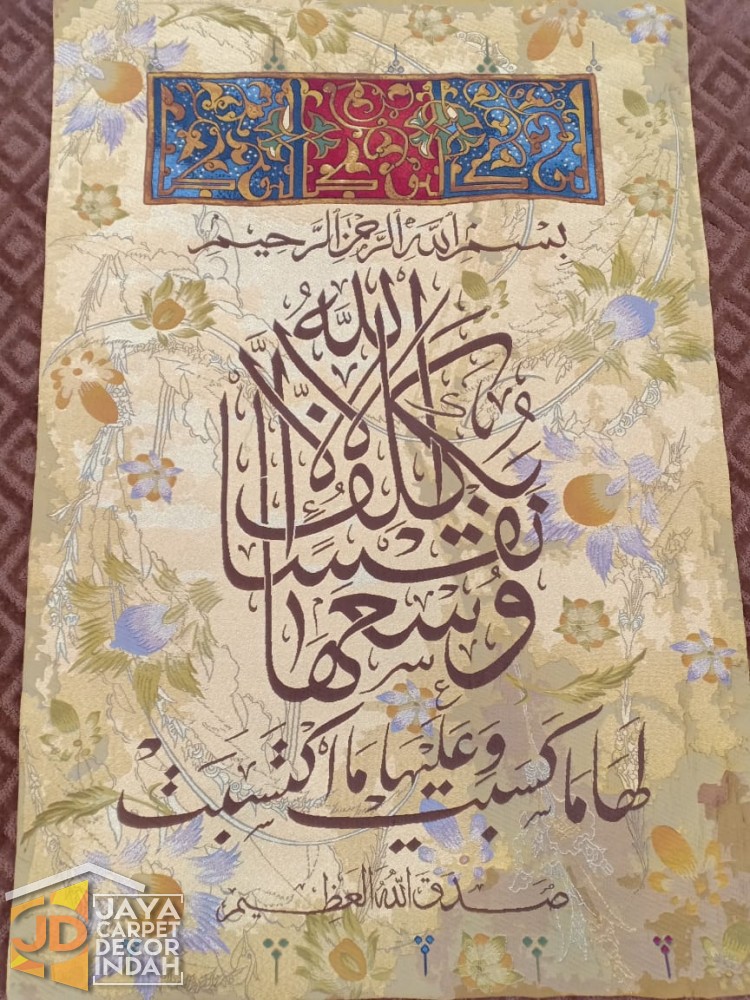 بِسْمِ اللهِ الرَّحْمٰنِ الرَّحِيْمِ
لَا يُكَلِّفُ اللهُ
نَفْسًا إِلَّا
وُسْعَهَا
لَهَا مَا كَسَبَتْ وَعَلَيْهَا مَا اكْتَسَبَتْ
صَدَقَ اللهُ العَظِيْم
JD
JAYA
CARPET
DECOR
INDAH